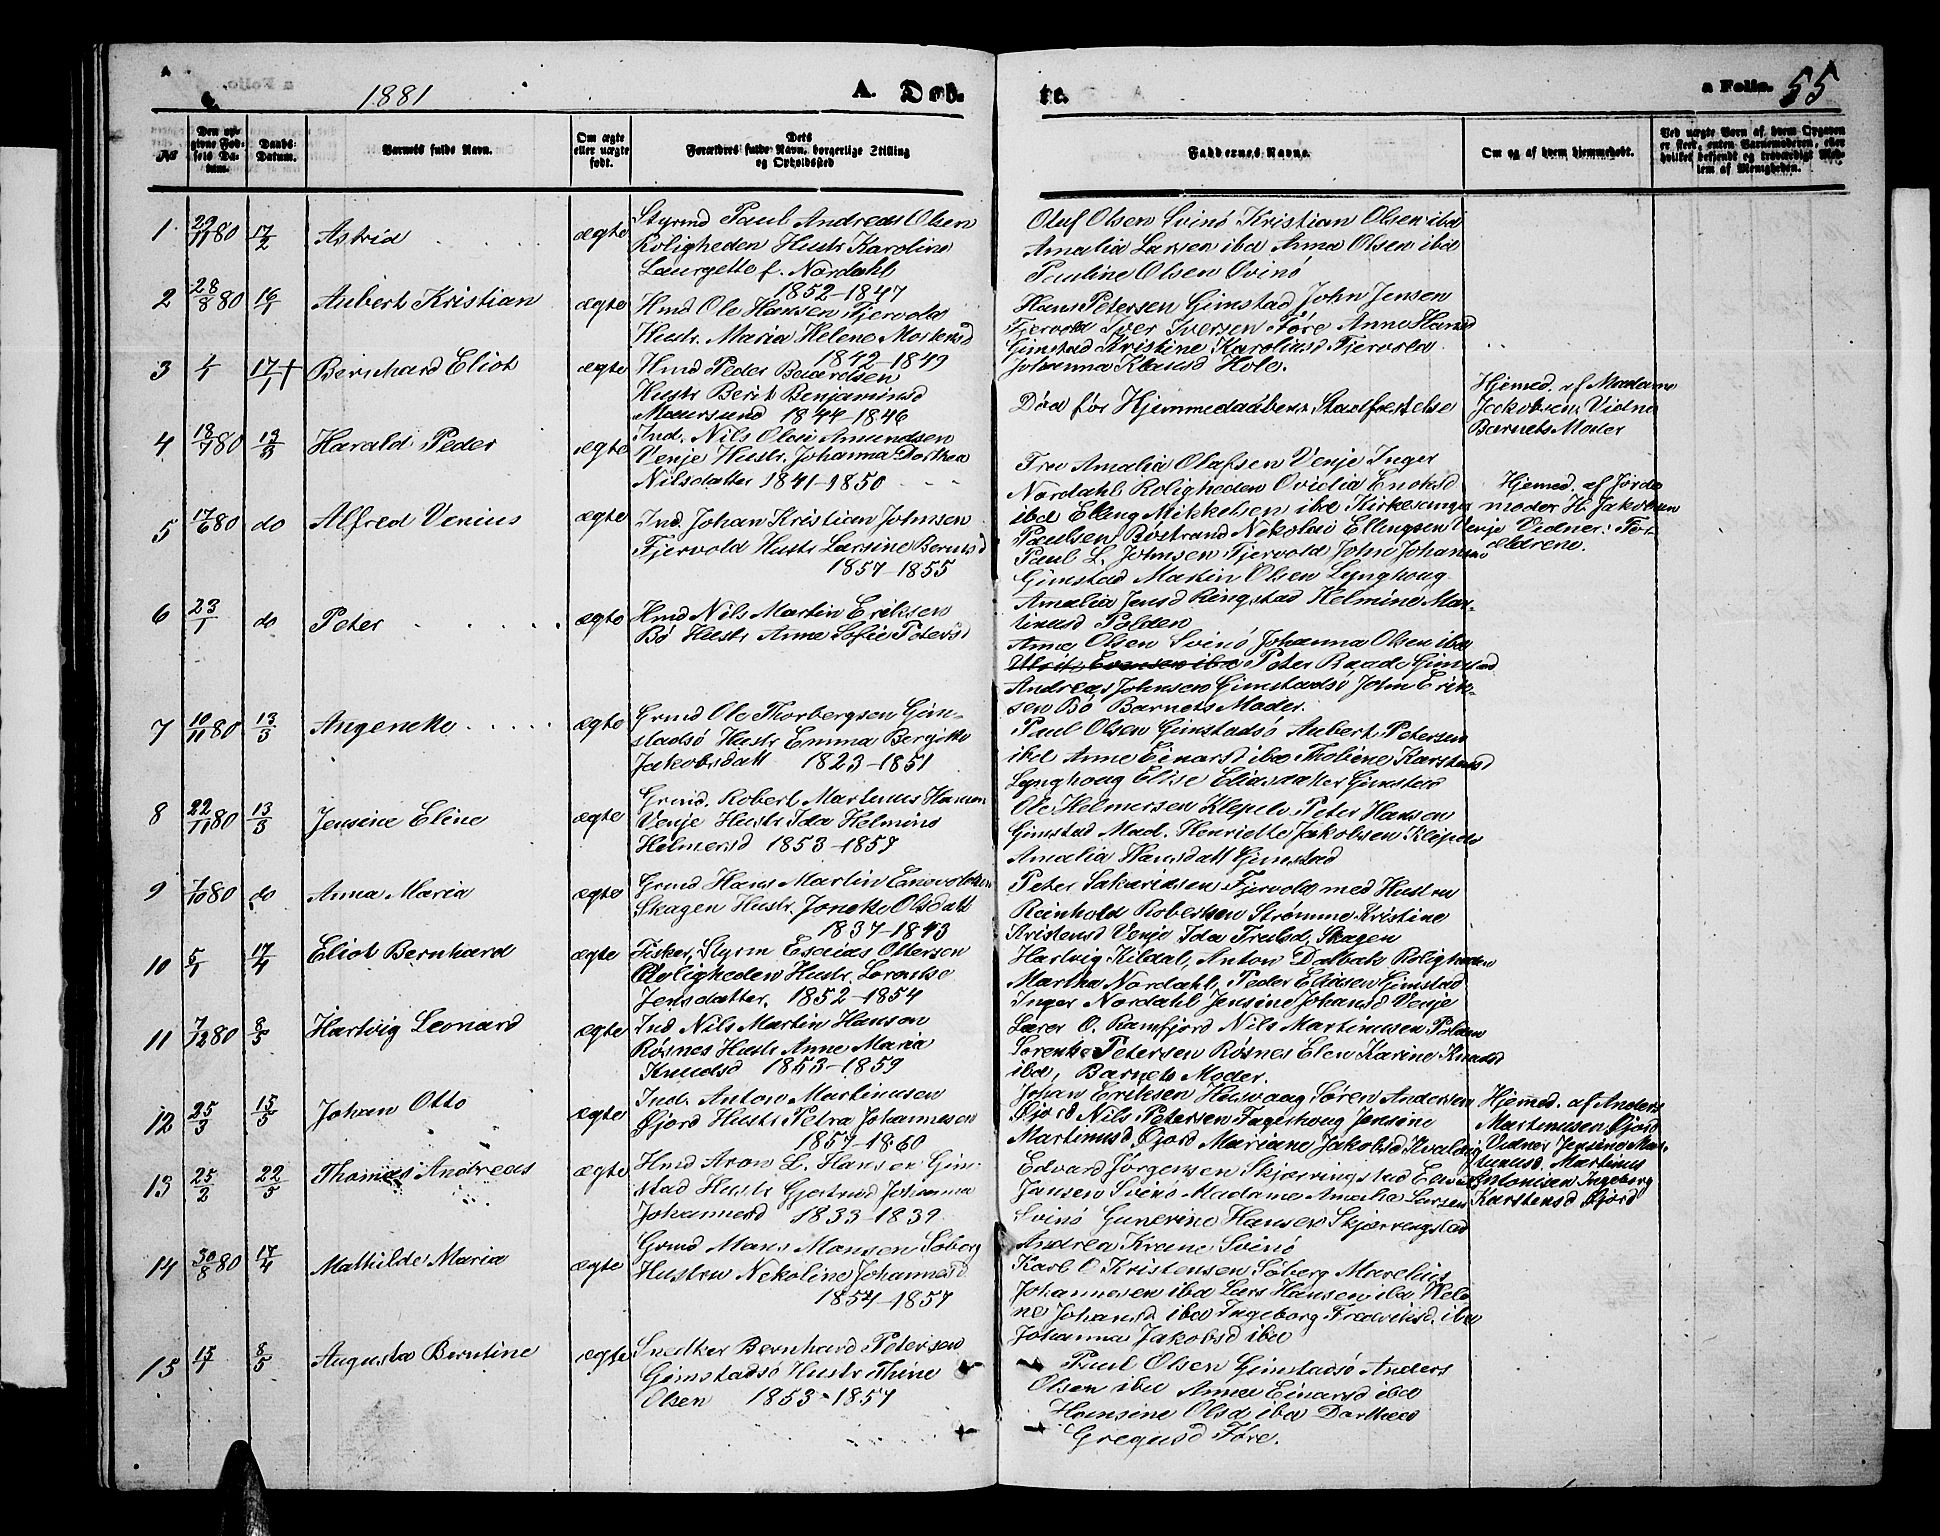 1881
A. Døb-
te.
a Folio. 55
No
Den opgivne Fødsels Datum.
Daabs-Datum.
Barnets fulde Navn.
Om ægte eller uægte født.
Dets Forældres fulde Navn, borgerlige Stilling og Opholdssted
Faddernes Navne.
Om og af hvem hjemmedøbt.
Ved uægte Børn af hvem Opgaven er skeet, enten Barnemoderen, eller hvilket bekjendt og troværdigt Medlem af Menigheden.
1 29/11 80 17/2 Astrid ægte
Styrmd Paul Andreas Olsen
Roligheden Hustr Karoline
Laurgette f. Nordahl
1852-1847
Oluf Olsen Svinö Kristian Olsen ibd
Amalia Larsen ibd Anna Olsen ibd
Pauline Olsen Svinö
2 28/8 80 16/1 Aubert Kristian ægte
Hmd Ole Hansen Fjervold
Hustr. Maria Helene Mortensd
1842-1849
Hans Petersen Gimstad John Jensen
Fjervold Iver Iversen Føre Anne Hansd
Gimstad Kristine Karoliusd Fjervold
Johanna Klausd Hole.
3 4/1 17/1 † Bernhard Eliot ægte
Hmd Peder Baardsen
Hustr Berit Benjaminsd
Maursund 1844-1846
Død før Hjemmedaabens Stadfæstelse
Hjemed. af Madame
Jakobsen, Vidne
Barnets Moder
4 18/7 80 13/3 Harald Peder ægte
Ind. Nils Olai Amundsen
Venje Hustr. Johanna Dorthea
Nilsdatter 1841-1850
Fru Amalia Olafsen Venje Inger
Nordahl Roligheden Ovidia Enoksd
ibd Elling Mikkelsen ibd Kirkesanger
Paulsen Røstrand Nekolai Ellingsen Venje
Hjemed. af Jorde
moder H. Jakobsen
Vidner: For-
ældrene.
5 17/6 80 do Alfred Venius ægte
Ind. Johan Kristian Johnsen
Fjervold Hustr Larsine Berntsd
1857-1855
Paul L. Johnsen Fjervold John Johans
Gimstad Martin Olsen Lynghoug
Amalia Jensd Ringstad Helmine Mar-
tinusd Polden
6 23/1 do Peter ægte
Hmd Nils Martin Eriksen
Bø Hustr Anne Sofie Petersd
Ane Olsen Svinö Johanna Olsen ibd
Peter Baade Gimstad
Andreas Johnsen Gimstadsö John Erik-
sen Bø Barnets Moder.
7 10/11 80 13/3 Angeneke ægte
Grmd Ole Thorbergsen Gim-
stadsö Hustr Emma Bergitte
Jakobsdatt 1823-1851
Paul Olsen Gimstadsö Aubert Petersen
ibd Anne Einarsd ibd Tholine Karstensd
Lynghoug Elise Eliasdatter Gimstad
8 22/11 80 13/3 Jensine Eline ægte
Grmd. Robert Martinus Hansen
Venje Hustr Ida Helmine
Helmersd 1853-1857
Ole Helmersen Klepele Peter Hansen
Gimstad Mad. Henriette Jakobsen Klepele
Amalia Hansdatt Gimstad
9 7/10 80 do Anna Maria ægte
Grmd Hans Martin Enevoldsen
Skagen Hustr. Joneke Olsdatt
1837-1843
Peter Sakariasen Fjervold med Hustru
Reinhold Robertsen Strømme Kristine
Kristensd Venje Ida Trulsd Skagen
10 5/1 17/4 Eliot Bernhard ægte
Fisker, Styrm Esaias Ottersen
Roligheden Hustr. Lorentse
Jensdatter. 1852-1854
Hartvig Kildal, Anton Dalbak Roligheden
Martha Nordahl, Peder Eliasen Gimstad
Inger Nordahl Jensine Johansd Venje
11 7/12 80 8/5 Hartvig Leonard ægte
Ind Nils Martin Hansen
Røsnes Hustr Anne Maria
Knudsd 1853-1859
Lærer O. Ramfjord Nils Martinusen Polden
Lorentse Petersen Røsnes Elen Karine Knudsd
ibd, Barnets Moder.
12 25/3 15/5 Johan Otto ægte
Ind. Anton Martinusen
Øjord Hustr Petra Johannesen
1857-1860
Johan Eriksen Helwaag Søren Andersen
Øjord Nils Petersen Fagerhoug Jensine
Martinusd Øjord Mariane Jakobsd Kvalöig
Hjemed. af Anders
Martinusen Øjord
Vidner Jensine Mar-
tinusd. Martinus
Antonisen Ingeborg
Karstensd Øjord
13 25/2 22/5 Thomas Andreas ægte
Hmd Aron L. Hansen Gim-
stad Hustr Gjertrud Johanna
Johannesd 1833-1839
Edvard Jørgensen Skjærringstad
Jansen Svinö Madame Amalia Larsen
Svinö Gunerine Hansen Skjærringstad
Andrea Krane Svinö
14 30/8 80 17/4 Mathilde Maria ægte
Grmd Mons Monsen Søberg
Hustru Nekoline Johannesd
1854-1857
Karl O Kristensen Søberg Marelius
Johannesen ibd Lars Hansen ibd Hele-
ne Johansd ibd Ingeborg Fredriksd. ibd
Johanna Jakobsd ibd
15 15/1 8/5 Augusta Berntine ægte
Snedker Bernhard Petersen
Gimstadsö Hustr Thine
Olsen 1853-1857
Paul Olsen Gimstadsö Anders
Olsen ibd Anna Einarsd ibd
Hansine Olsd ibd Dorthea
Gregusd Føre.